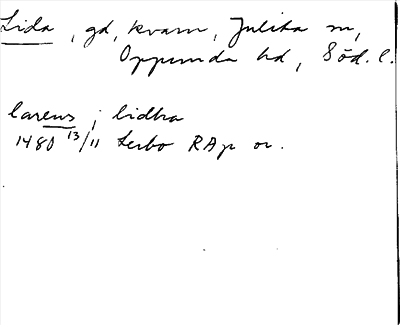 Lida, gd, kvarn, Julita sn,
Oppunda hd, Söd. l.
larens i lidha
1480 13/11 Lerbo RAp or.